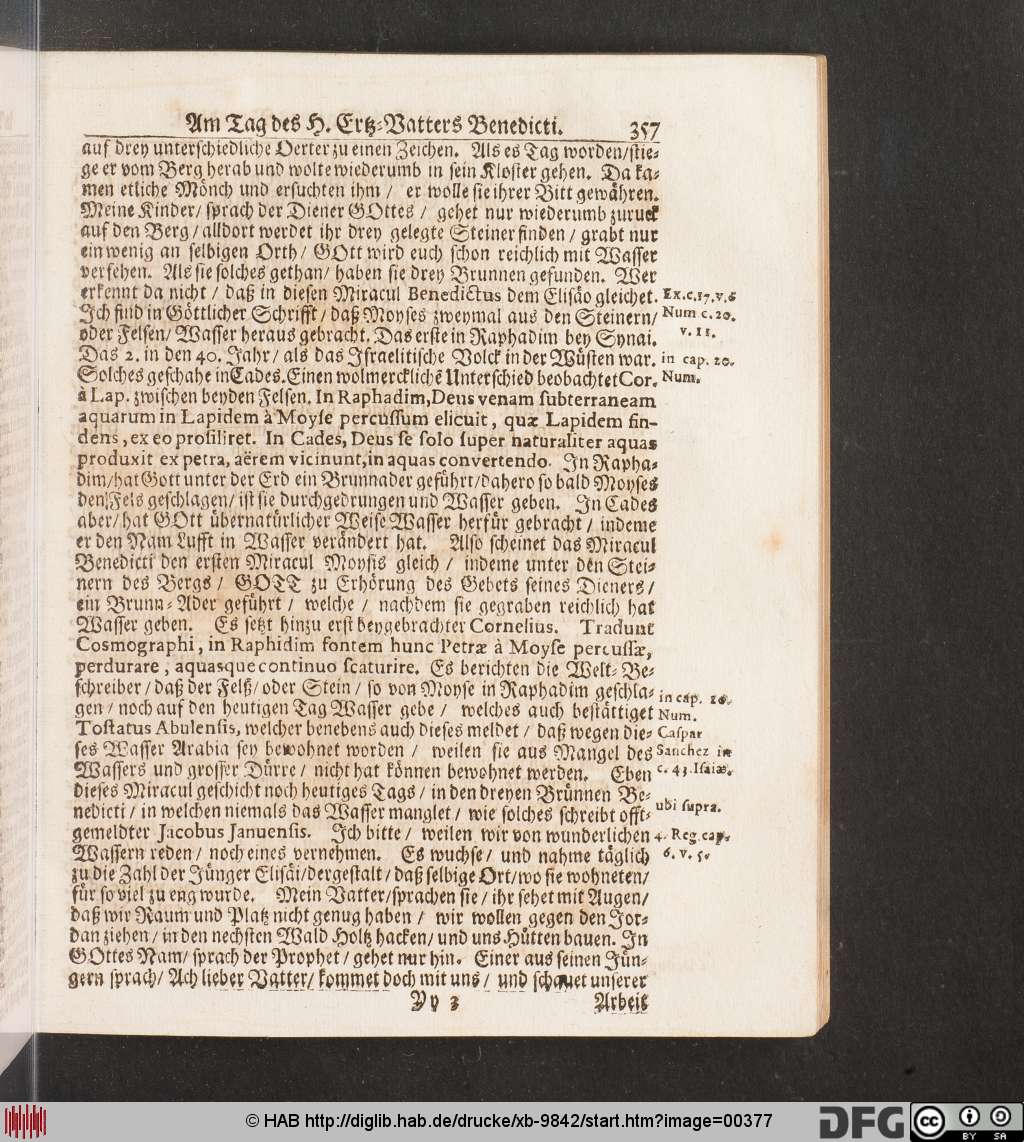 Am Tag des H. Ertz-Vatters Benedicti. 357
auf drey unterschiedliche Oerter zu einen Zeichen. Als es Tag worden/ stie-
ge er vom Berg herab und wolte wiederumb in sein Kloster gehen. Da ka-
men etliche Mönch und ersuchten ihm / er wolle sie ihrer Bitt gewähren.
Meine Kinder/ sprach der Diener GOttes / gehet nur wiederumb zuruck
auf den Berg / alldort werdet ihr drey gelegte Steiner finden / grabt nur
ein wenig an selbigen Orth/ GOtt wird euch schon reichlich mit Wasser
versehen. Als sie solches gethan/ haben sie drey Brunnen gefunden. Wer
erkennt da nicht / daß in diesen Miracul Benedictus dem Elisäo gleichet. Ex. c. 17. v. 6
Ich find in Göttlicher Schrifft / daß Moyses zweymal aus den Steinern/ Num c. 20.
oder Felsen/ Wasser heraus gebracht. Das erste in Raphadim bey Synai. v. 11.
Das 2. in den 40. Jahr/ als das Israelitische Volck in der Wüsten war. in cap. 20.
Solches geschahe in Cades. Einen wolmercklichē Unterschied beobachtet Cor. Num.
à Lap. zwischen beyden Felsen. In Raphadim, Deus venam subterraneam
aquarum in Lapidem à Moyse percussum elicuit, quæ Lapidem fin-
dens, ex eo prosiliret. In Cades, Deus se solo super naturaliter aquas
produxit ex petra, aërem vicinunt, in aquas convertendo. In Rapha-
dim/ hat Gott unter der Erd ein Brunnader geführt/ dahero so bald Moyses
den Fels geschlagen/ ist sie durchgedrungen und Wasser geben. In Cades
aber/ hat GOtt übernatürlicher Weise Wasser herfür gebracht / indeme
er den Nam Lufft in Wasser verändert hat. Also scheinet das Miracul
Benedicti den ersten Miracul Moysis gleich / indeme unter den Stei-
nern des Bergs / GOTT zu Erhörung des Gebets seines Dieners /
ein Brunn-Ader geführt / welche / nachdem sie gegraben reichlich hat
Wasser geben. Es setzt hinzu erst beygebrachter Cornelius. Tradunt
Cosmographi, in Raphidim fontem hunc Petræ à Moyse percussæ,
perdurare, aquasque continuo scaturire. Es berichten die Welt-Be-
schreiber / daß der Felß/ oder Stein / so von Moyse in Raphadim geschla- in cap. 20.
gen / noch auf den heutigen Tag Wasser gebe / welches auch bestättiget Num.
Tostatus Abulensis, welcher benebens auch dieses meldet / daß wegen die- Caspar
ses Wasser Arabia sey bewohnet worden / weilen sie aus Mangel des Sanchez in
Wassers und grosser Dürre / nicht hat können bewohnet werden. Eben c. 43. Isaiæ.
dieses Miracul geschicht noch heutiges Tags / in den dreyen Brünnen Be-
nedicti / in welchen niemals das Wasser manglet / wie solches schreibt offt- ubi supra.
gemeldter Jacobus Januensis. Ich bitte / weilen wir von wunderlichen 4. Reg. cap.
Wassern reden / noch eines vernehmen. Es wuchse / und nahme täglich 6. v. 5.
zu die Zahl der Jünger Elisäi/ dergestalt / daß selbige Ort/ wo sie wohneten/
für so viel zu eng wurde. Mein Vatter/ sprachen sie / ihr sehet mit Augen/
daß wir Raum und Platz nicht genug haben / wir wollen gegen den Jor-
dan ziehen / in den nechsten Wald Holtz hacken/ und uns Hütten bauen. In
GOttes Nam/ sprach der Prophet / gehet nur hin. Einer aus seinen Jün-
gern sprach/ Ach lieber Vatter/ kommet doch mit uns / und schauet unserer
Yy 3 Arbeit
© HAB http://diglib.hab.de/drucke/xb-9842/start.htm?image=00377
DFG
cc BY SA